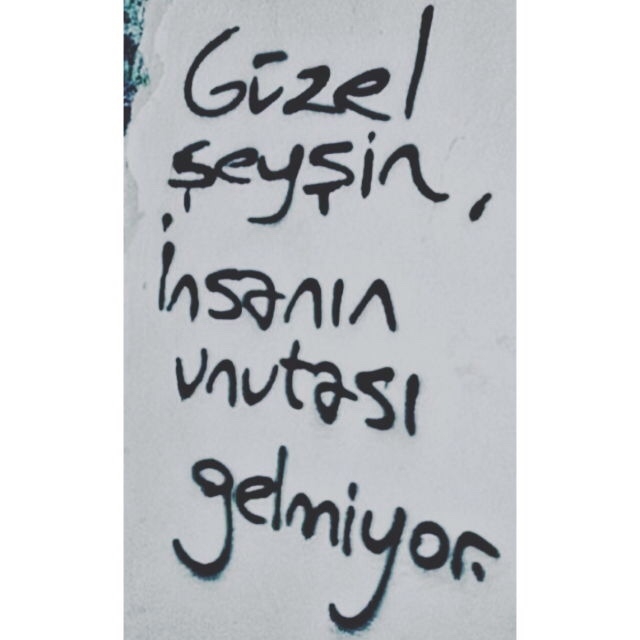 Güzel
şeyşin,
insanın
unutası
gelmiyor.